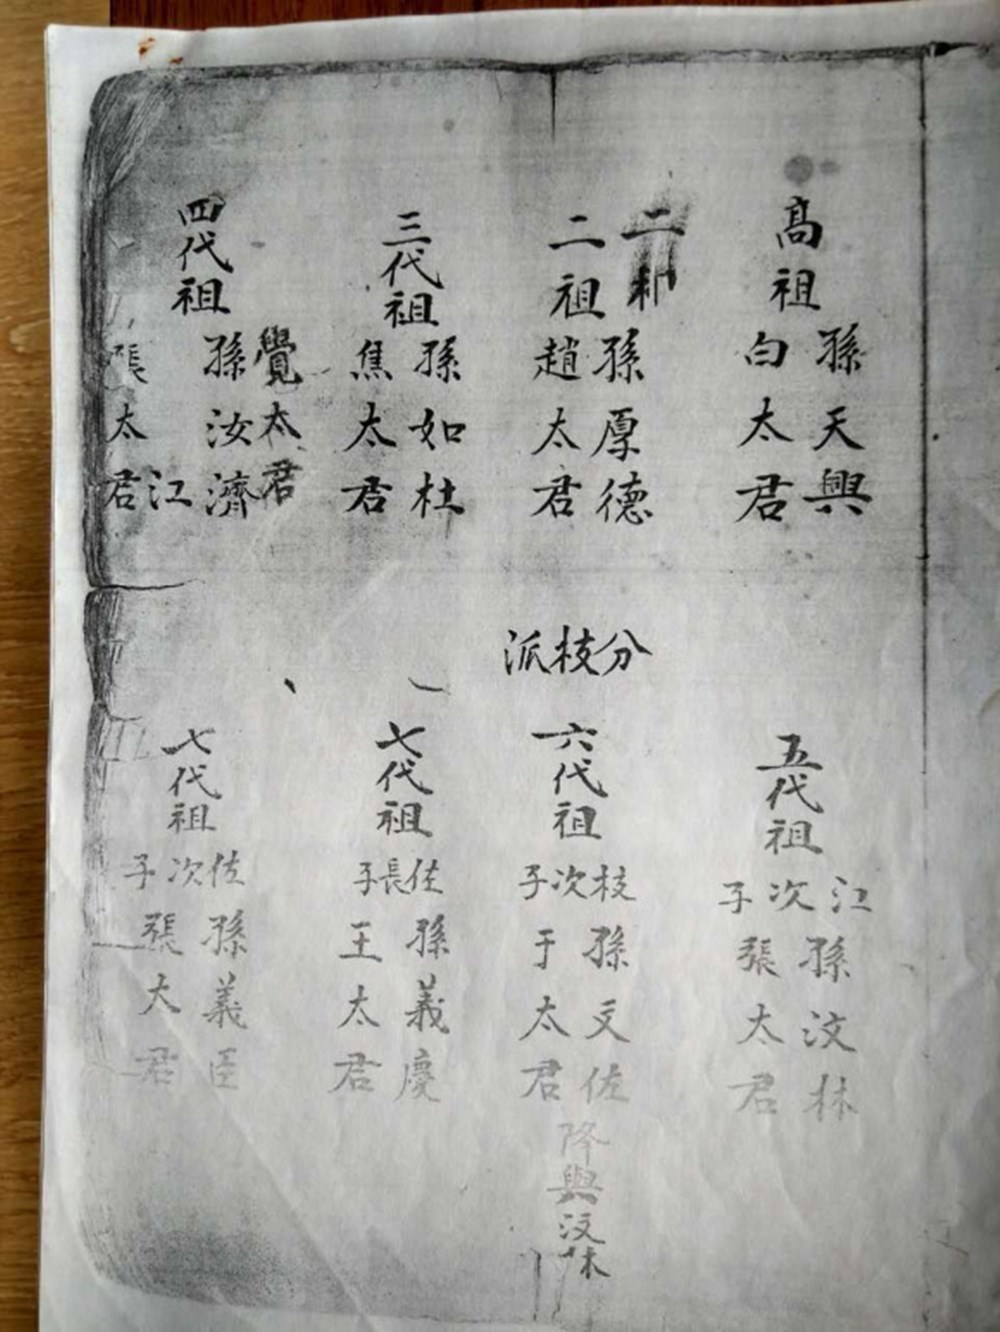 高祖
孫天興
白太君
二祖
孫厚德
趙太君
三代祖
孫如杜
焦太君
四代祖
覺太君
孫汝濟
江
張太君
分枝派
五代祖
江次子
孫汶林
張太君
六代祖
枝次子
孫文佐
于太君
降興汶林
七代祖
佐長子
孫義慶
王太君
七代祖
佐次子
孫義臣
張大君